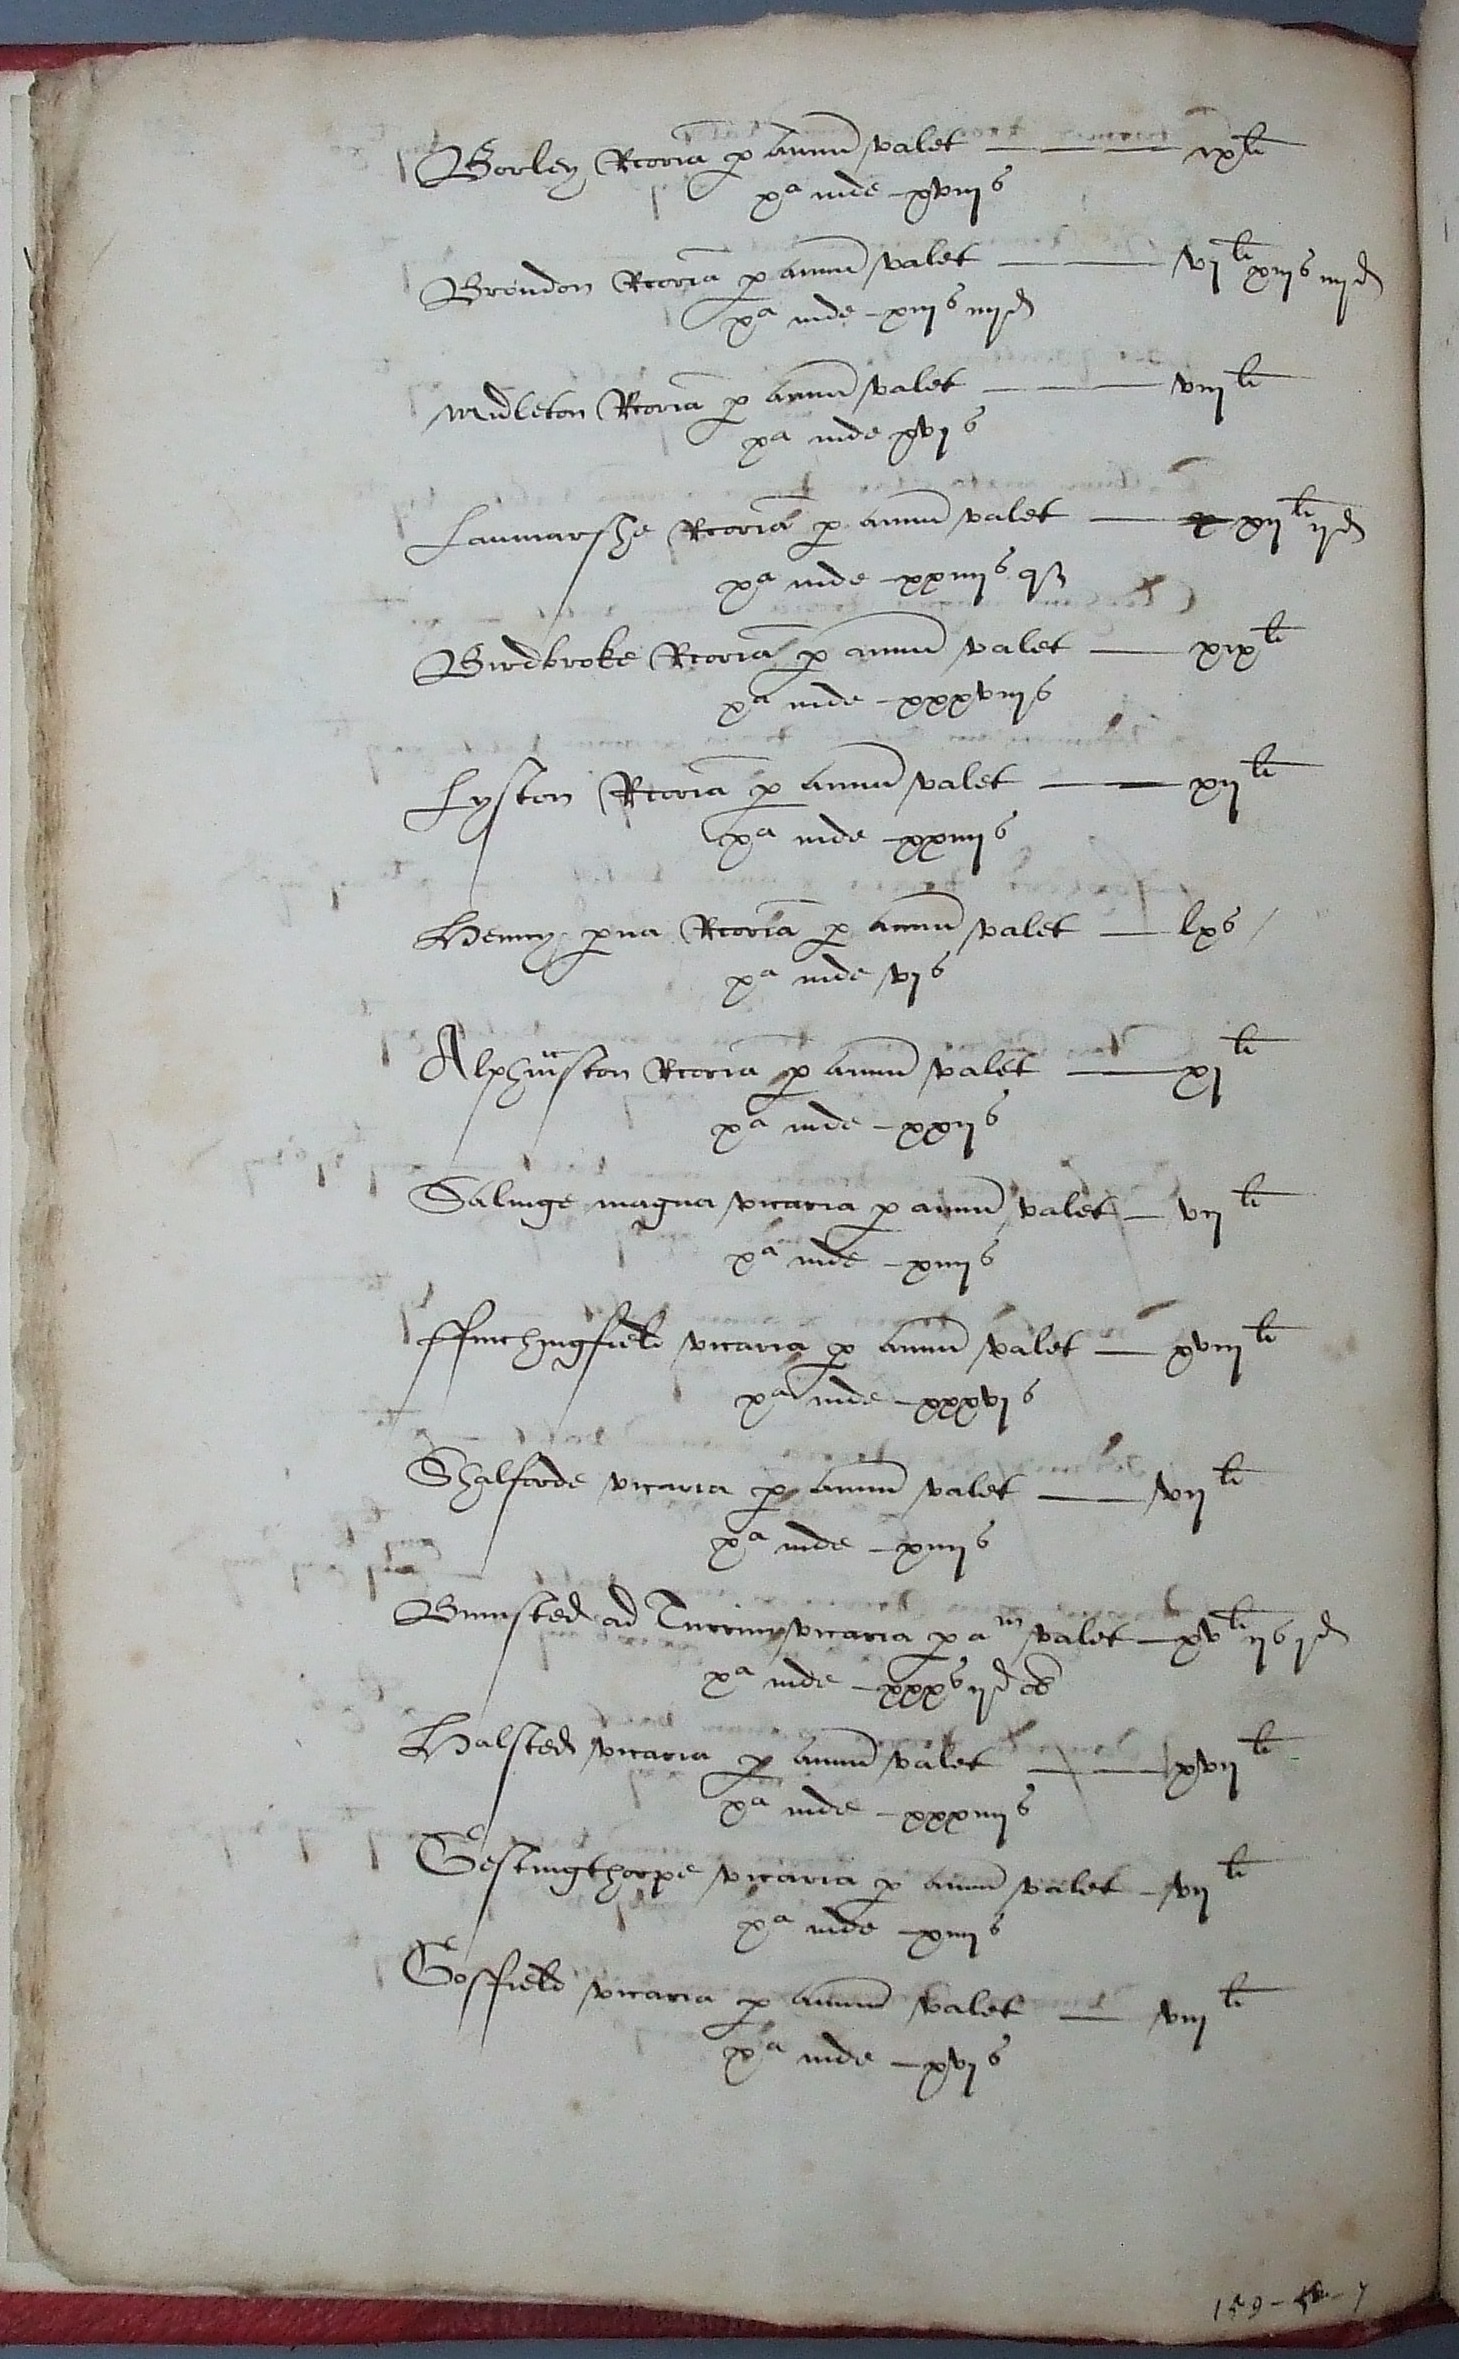 Borley Rcoria p annu valet — ix li
xa inde – xviij s
Brondon Rcoria p annu valet — vj li xiij s iiij d
xa inde – xiij s iiij d
Midleton Rcoria p annu valet — viij li
xa inde xvj s
Lammarshe Rcoria p annu valet — xij li ij d
xa inde – xxiiij s q
Birdbroke Rcoria p annu valet — xix li
xa inde – xxxviij s
Lyston Rcoria p annu valet — xij li
xa inde – xxiiij s
Henny pua Rcoria p annu valet — lx s
xa inde vj s
Alphinston Rcoria p annu valet — xj li
xa inde – xxij s
Salinge magna vicaria p annu valet — vij li
xa inde – xiiij s
ffinchingfield vicaria p annu valet — xviij li
xa inde – xxxvj s
Shalforde vicaria p annu valet — vij li
xa inde – xiiij s
Bumsted ad Turrim vicaria p am valet — xv li ij s j d
xa inde – xxx s ij d ob
Halsted vicaria p annu valet — xvij li
xa inde – xxxiiij s
Gestingthorpe vicaria p annu valet – vij li
xa inde – xiiij s
Gosffield vicaria p annu valet — viij li
xa inde – xvj s